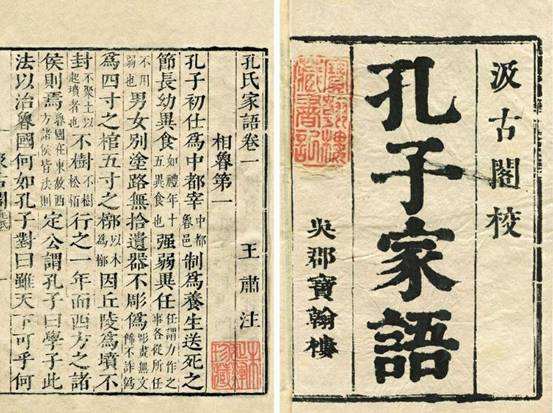 汲古閣校
孔子家語
吳郡寶翰樓
孔氏家語卷一
相魯第一 王肅注
孔子初仕為中都宰中都魯邑制為養生送死之
節長幼異食如禮年十五異食強弱異任任謂力作之事各從所任
不用弱也男女別塗路無拾遺器不彫偽
為四寸之棺五寸之槨以木為槨因丘陵為墳不
封不聚土以起墳者也不樹不樹松行之一年而西方之諸
侯則焉魯國在東故西方諸侯皆法則定公謂孔子曰學子此
法以治魯國何如孔子對曰雖天下可乎何